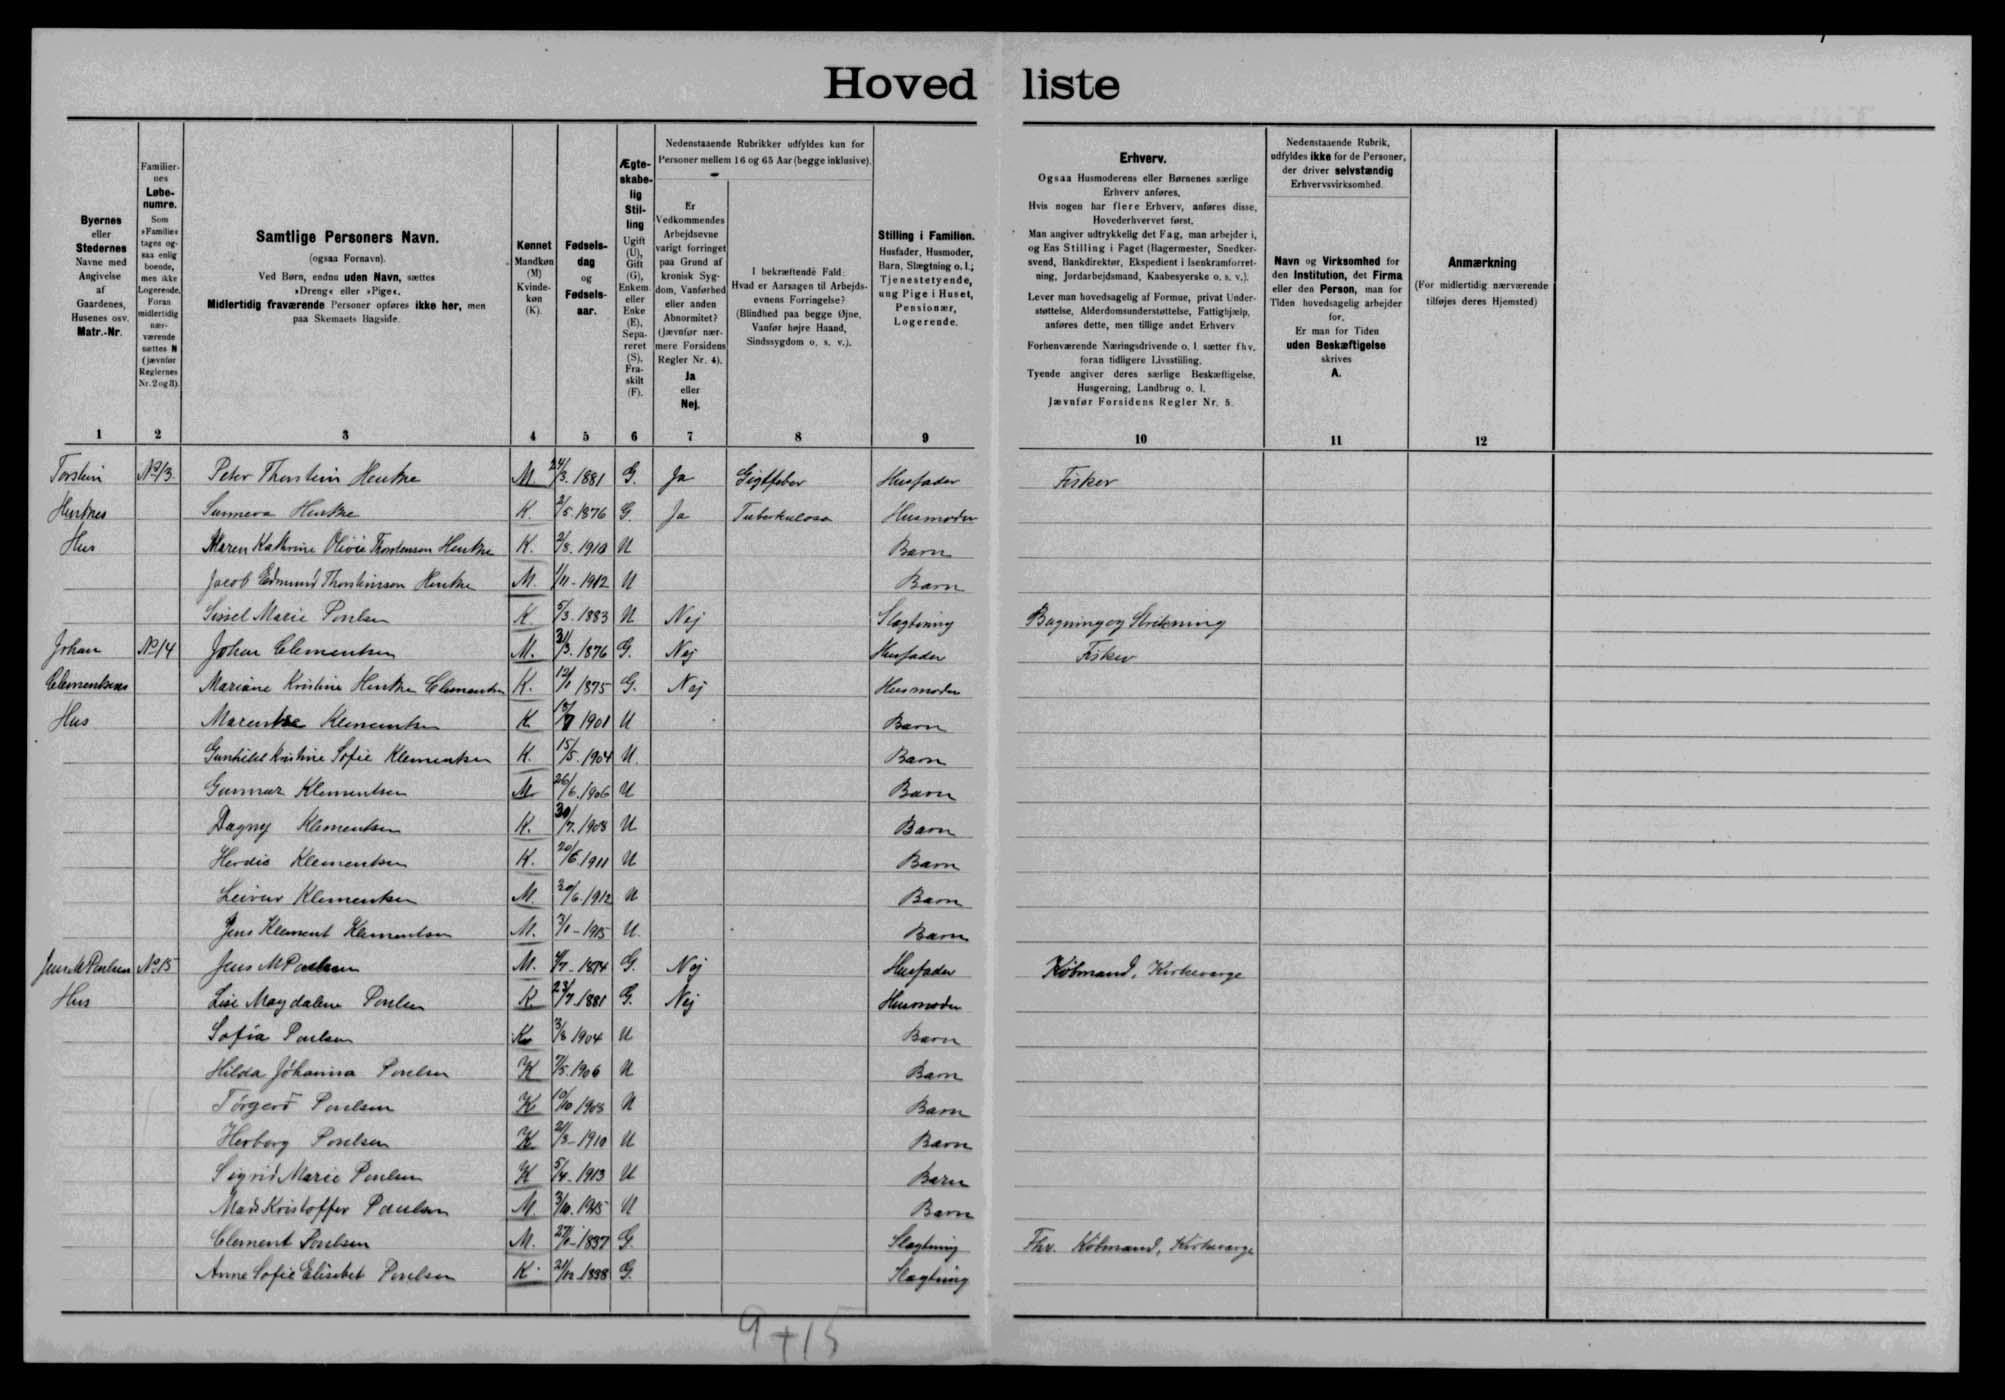 Hovedliste
Byernes eller Stedernes Navne med Angivelse af Gaardenes, Husenes osv. Matr.-Nr.
Familiernes Løbenumre. Som »Familie« tages ogsaa enlig boende, men ikke Logerende. Foran midlertidig nærværende sættes N (jævnfør Reglernes Nr. 2 og 3).
Samtlige Personers Navn. (ogsaa Fornavn). Ved Børn, endnu uden Navn, sættes »Dreng« eller »Pige«. Midlertidig fraværende Personer opføres ikke her, men paa Skemaets Bagside.
Kønnet Mandkøn (M) Kvindekøn (K).
Fødselsdag og Fødselsaar.
Ægteskabelig Stilling Ugift (U), Gift (G), Enkem. eller Enke (E), Separeret (S), Fraskilt (F).
Nedenstaaende Rubrikker udfyldes kun for Personer mellem 16 og 65 Aar (begge inklusive).
Er Vedkommendes Arbejdsevne varigt forringet paa Grund af kronisk Sygdom, Vanførhed eller anden Abnormitet? (Jævnfør nærmere Forsidens Regler Nr. 4). Ja eller Nej.
I bekræftende Fald: Hvad er Aarsagen til Arbejdsevnens Forringelse? (Blindhed paa begge Øjne, Vanfør højre Haand, Sindssygdom o. s. v.).
Stilling i Familien. Husfader, Husmoder, Barn, Slægtning o. l.; Tjenestetyende, ung Pige i Huset, Pensionær, Logerende.
Erhverv.
Ogsaa Husmoderens eller Børnenes særlige Erhverv anføres.
Hvis nogen har flere Erhverv, anføres disse, Hovederhvervet først.
Man anfører udtrykkelig det Fag, man arbejder i, og Ens Stilling i Faget (Bagermester, Snedkersvend, Bankdirektør, Ekspedient i Isenkramforretning, Jordarbejdsmand, Kaabesyerske o. s. v.).
Lever man hovedsagelig af Formue, privat Understøttelse, Alderdomsunderstøttelse, Fattighjælp, anføres dette, men tillige andet Erhverv
Forhenværende Næringsdrivende o. l. sætter fhv. foran tidligere Livsstilling.
Tyende angiver deres særlige Beskæftigelse, Husgerning, Landbrug o. l.
Jævnfør Forsidens Regler Nr. 5.
Nedenstaaende Rubrik, udfyldes ikke for de Personer, der driver selvstændig Erhvervsvirksomhed.
Navn og Virksomhed for den Institution, det Firma eller den Person, man for Tiden hovedsagelig arbejder for.
Er man for Tiden uden Beskæftigelse skrives A.
Anmærkning (For midlertidig nærværende tilføjes deres Hjemsted)
1 2 3 4 5 6 7 8 9 10 11 12
Torstein No 13. Peter Thorstein Hentze M 24/3. 1881 G. Ja Gigtfeber Husfader Fisker
Hentzes Sunneva Hentze K. 2/5. 1876 G. Ja Tuberkulose Husmoder
Hus Maren Kathrine Olivie Thorstenson Hentze K. 2/8. 1910 U Barn
Jacob Edmund Thorsteinson Hentze M. 1/11 - 1912 U Barn
Sissel Marie Poulsen K. 5/3. 1883 U Nej Slægtning Bagning og Strikning
Johan No 14 Johan Clementsen M. 31/3. 1876 G. Nej Husfader Fisker
Clementsens Mariane Kristine Hentze Clementsen K. 12/1 1875 G. Nej Husmoder
Hus Marentze Klementsen K 1901 U Barn
Gunhild Kristine Sofie Klementsen K. 15/5. 1904 U. Barn
Gunnar Klementsen M 26/6. 1906 U Barn
Dagny Klementsen K. 30/7. 1908 U Barn
Herdis Klementsen K. 20/6 1911 U Barn
Leivur Klementsen M. 30/6. 1912 U Barn
Jens Klement Klementsen M. 3/1 - 1915 U. Barn
Jens M Poulsen No 15 Jens M Poulsen M. 4/7 - 1874 G. Nej Husfader Købmand, Kirkeværge
Hus Lise Magdalene Poulsen K. 23/7. 1881 G. Nej Husmoder
Sofia Poulsen K 3/8 1904 U Barn
Hilda Jóhanna Poulsen K 7/5. 1906 U Barn
Tórgerð Poulsen K 10/10 1908 U Barn
Herborg Poulsen K 21/3 - 1910 U Barn
Sigrid Marie Poulsen K 5/4. 1913 U Barn
Mads Kristoffer Poulsen M. 3/10. 1915 U Barn
Clement Poulsen M. 27/1 - 1837 G. Slægtning Fhv. Købmand, Kirkeværge
Anne Sofie Elisebet Poulsen K 21/12 1838 G. Slægtning
9+15